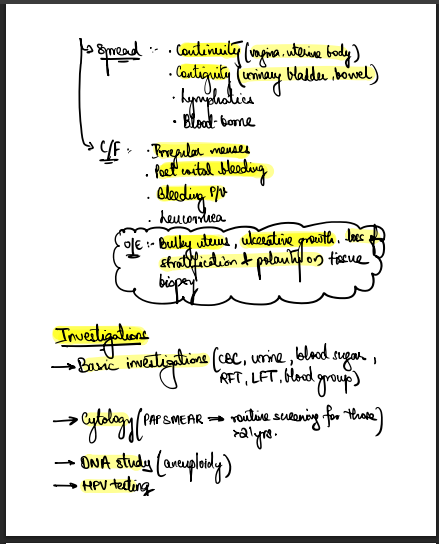 Spread :- · Continuity (vagina, uterine body)
· Contiguity (urinary bladder, bowel)
· Lymphatics
· Blood-borne
C/F :- · Irregular menses
· Post coital bleeding
· Bleeding P/V
· Leucorrhea
O/E :- Bulky uterus, ulcerative growth, loss of
stratification & polarity on tissue
biopsy
Investigations
→ Basic investigations (CBC, urine, blood sugar,
RFT, LFT, blood group)
→ Cytology (PAP SMEAR ⇒ routine screening for those
>21yrs.)
→ DNA study (aneuploidy)
→ HPV testing